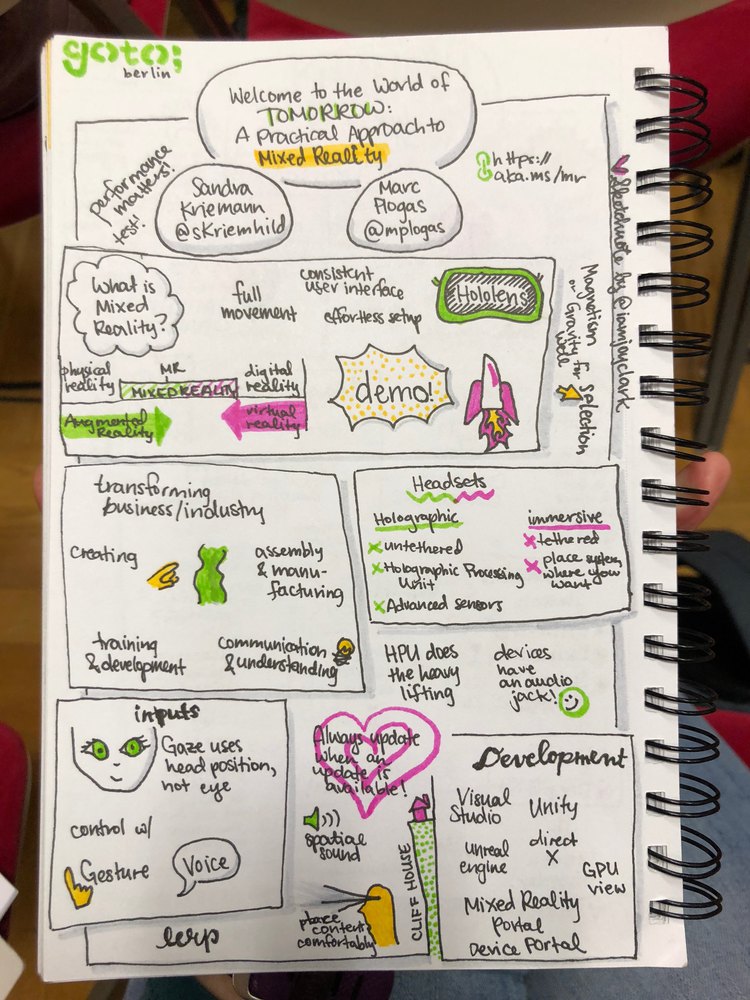 goto;
berlin
Welcome to the World of
TOMORROW:
A Practical Approach to
Mixed Reality
performance
matters!
test!
Sandra
Kriemann
@sKriemhild
Marc
Plogas
@mplogas
https://
aka.ms/mr
Sketchnote by @iamjayclark
What is
Mixed
Reality?
full
movement
consistent
user interface
effortless setup
Hololens
physical
reality
MR
digital
reality
MIXED REALITY
Augmented
Reality
virtual
reality
demo!
Magnetism
or Gravity for selection
well
transforming
business/industry
creating
assembly
& manu-
facturing
training
& development
communication
& understanding
Headsets
Holographic
x untethered
x Holographic Processing
Unit
x Advanced sensors
immersive
x tethered
x place system
where you
want
HPU does
the heavy
lifting
devices
have
an audio
jack!
inputs
Gaze uses
head position,
not eye
control w/
Gesture
Voice
Always update
when an
update is
available!
spatial
sound
place
content
comfortably
CLIFF HOUSE
Development
Visual
Studio
Unity
unreal
engine
direct
X
GPU
view
Mixed Reality
Portal
Device Portal
lerp